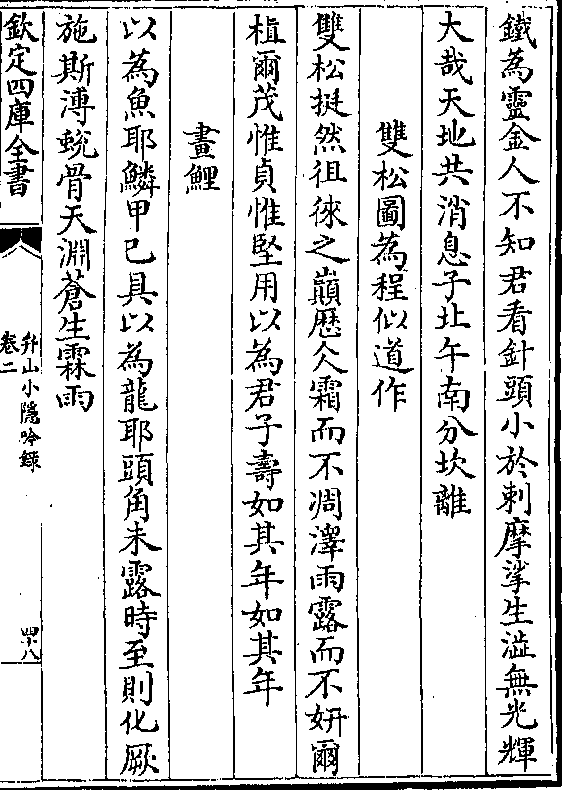 鐵為靈金人不知君看針頭小於刺摩挲生澁無光輝
大哉天地共消息子北午南分坎離
雙松圖為程似道作
雙松挺然徂徠之巔歷久霜而不凋澤雨露而不妍爾
植爾茂惟貞惟堅用以為君子壽如其年如其年
畫鯉
以為魚耶鱗甲已具以為龍耶頭角未露時至則化厥
施斯溥蛻骨天淵蒼生霖雨
欽定四庫全書
卷二
舟山小隱吟錄
四十八